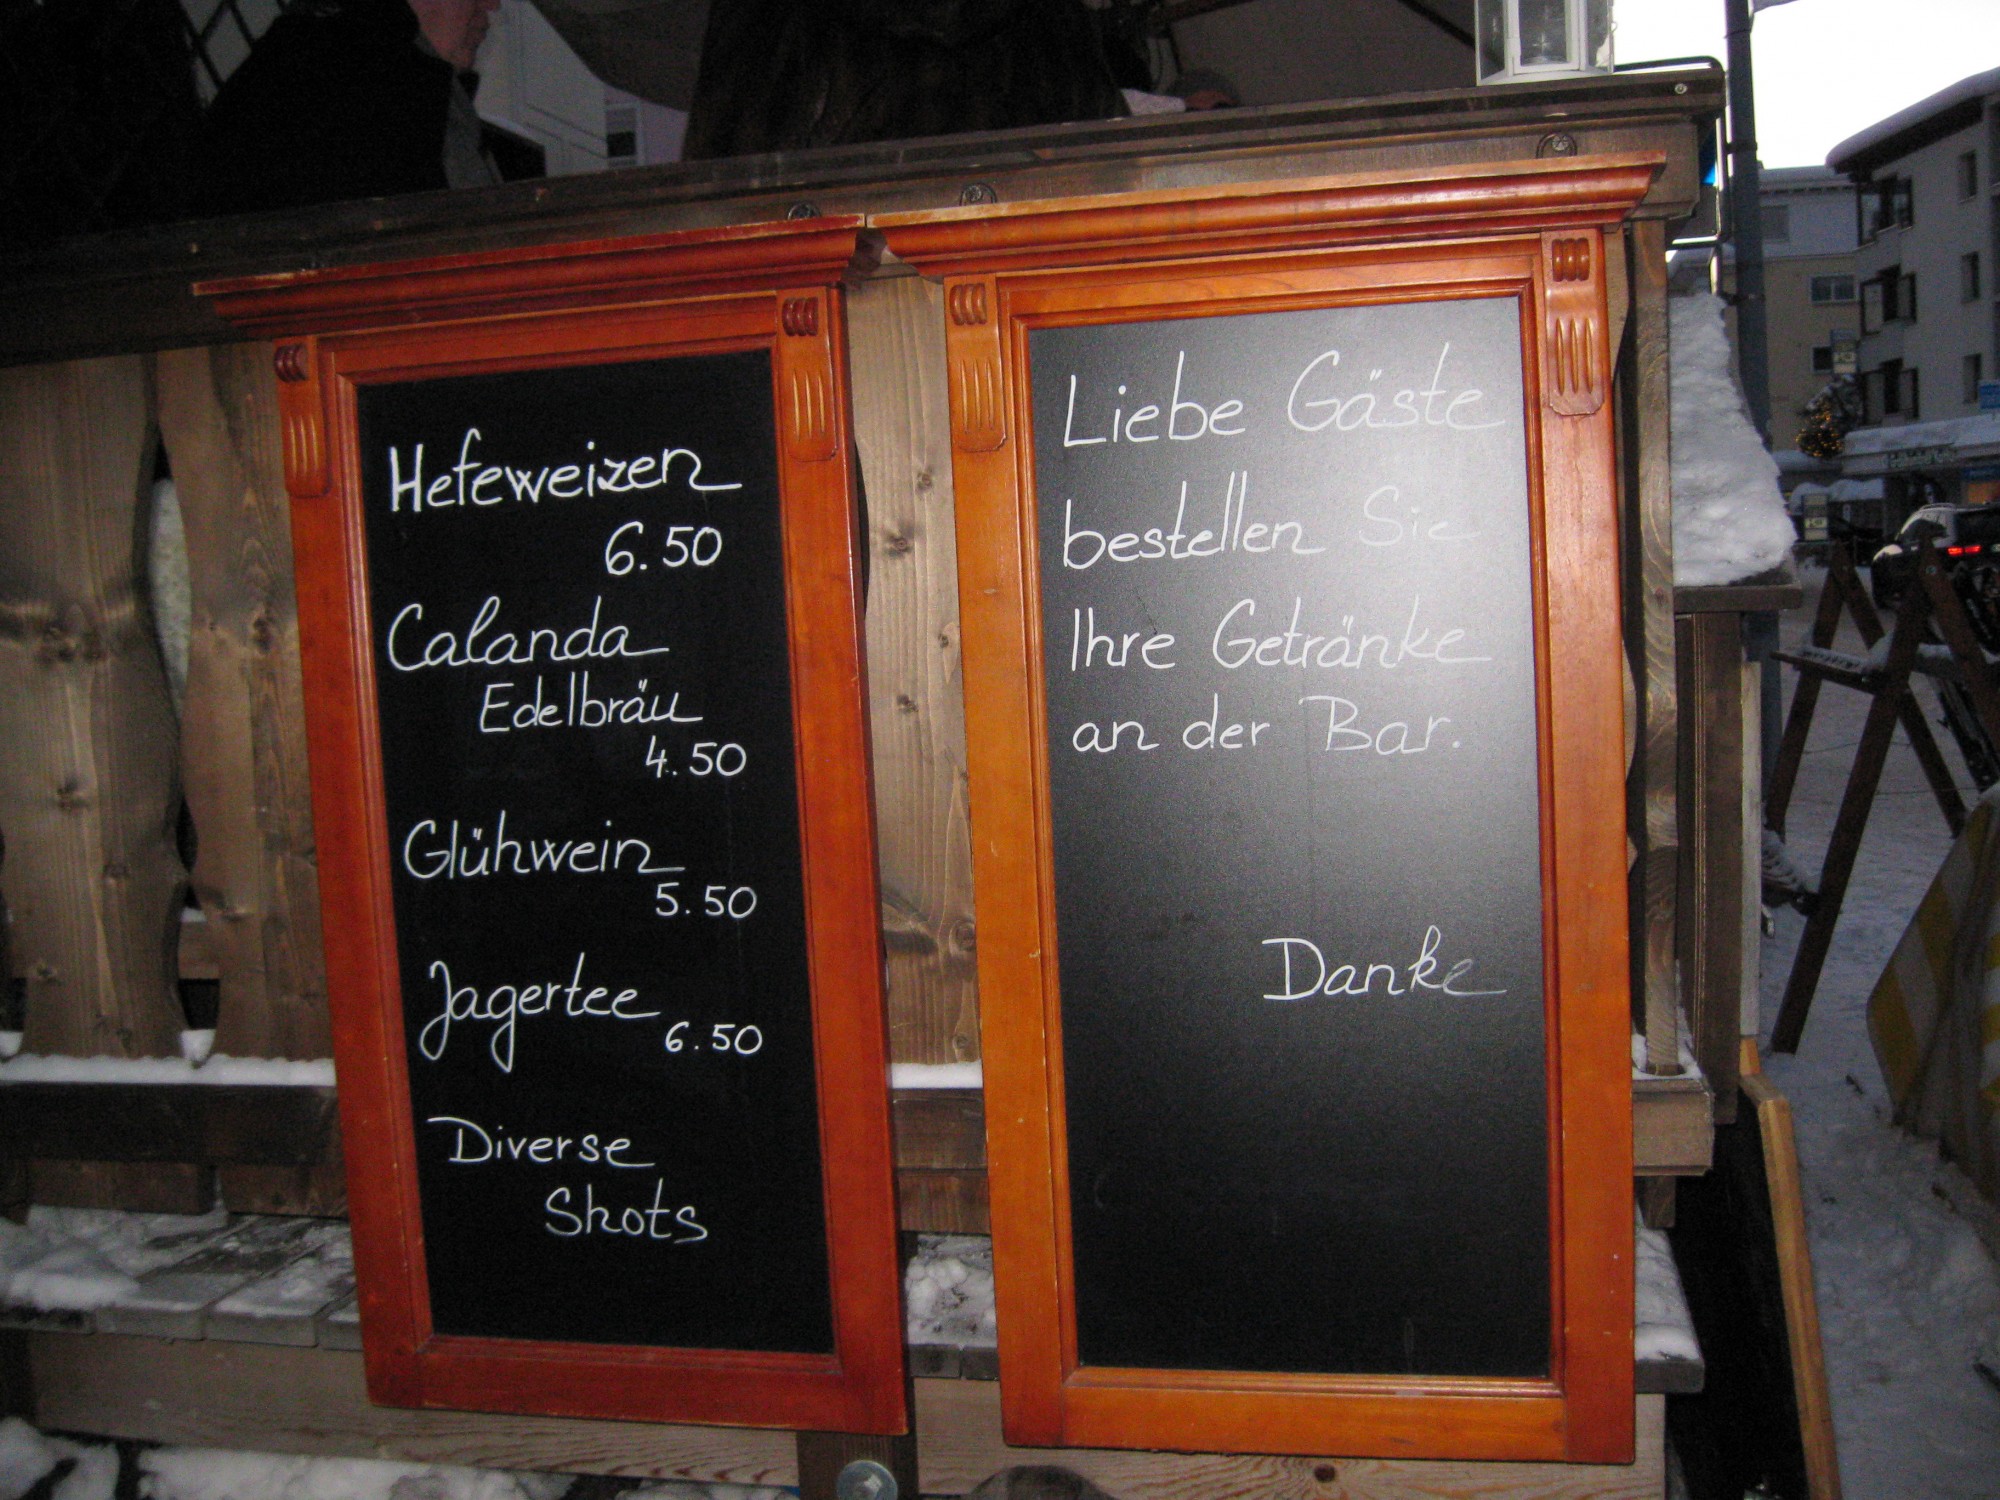 Hefeweizen
6.50
Calanda
Edelbräu
4.50
Glühwein
5.50
Jagertee
6.50
Diverse
Shots
Liebe Gäste
bestellen Sie
Ihre Getränke
an der Bar.
Danke